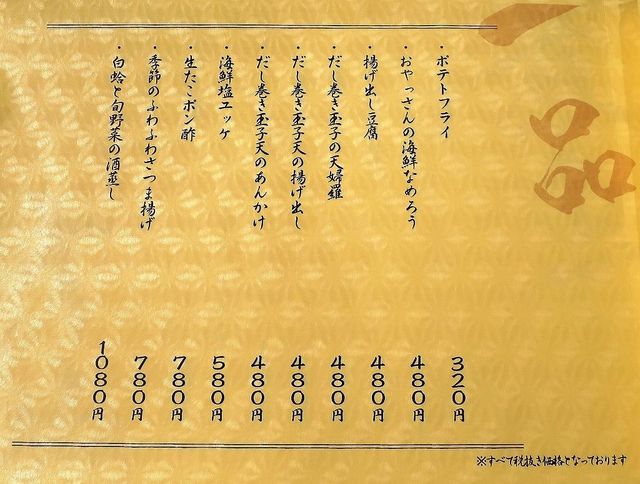 一品
・ポテトフライ 320円
・おやっさんの海鮮なめろう 480円
・揚げ出し豆腐 480円
・だし巻き玉子の天婦羅 480円
・だし巻き玉子天の揚げ出し 480円
・だし巻き玉子天のあんかけ 480円
・海鮮塩ユッケ 580円
・生たこポン酢 780円
・季節のふわふわさつま揚げ 780円
・白蛤と旬野菜の酒蒸し 1080円
※すべて税抜き価格となっております